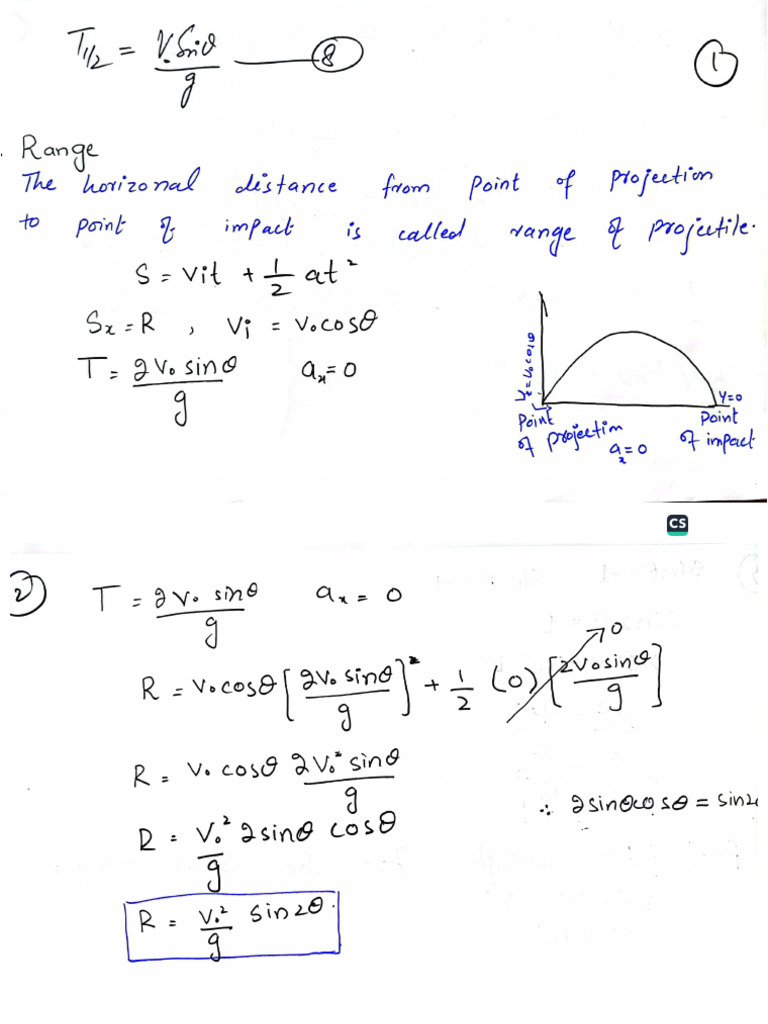 T1/2 = V₀Sinθ/g — 8
1
. Range
The horizonal distance from point of projection
to point of impact is called range of projectile.
S = vit + 1/2 at²
Sx = R , Vi = V₀cosθ
T = 2V₀ sinθ/g ax = 0
Vx = V₀ cosθ
Y=0
Point of projectim
ax = 0
Point of impact
CS
2
T = 2V₀ sinθ/g ax = 0
R = V₀cosθ [2V₀ sinθ/g]² + 1/2 (0) [2V₀sinθ/g] 0
R = V₀ cosθ 2V₀² sinθ/g
∴ 2sinθcosθ = sin2
R = V₀²/g 2sinθ cosθ
R = V₀²/g sin2θ.